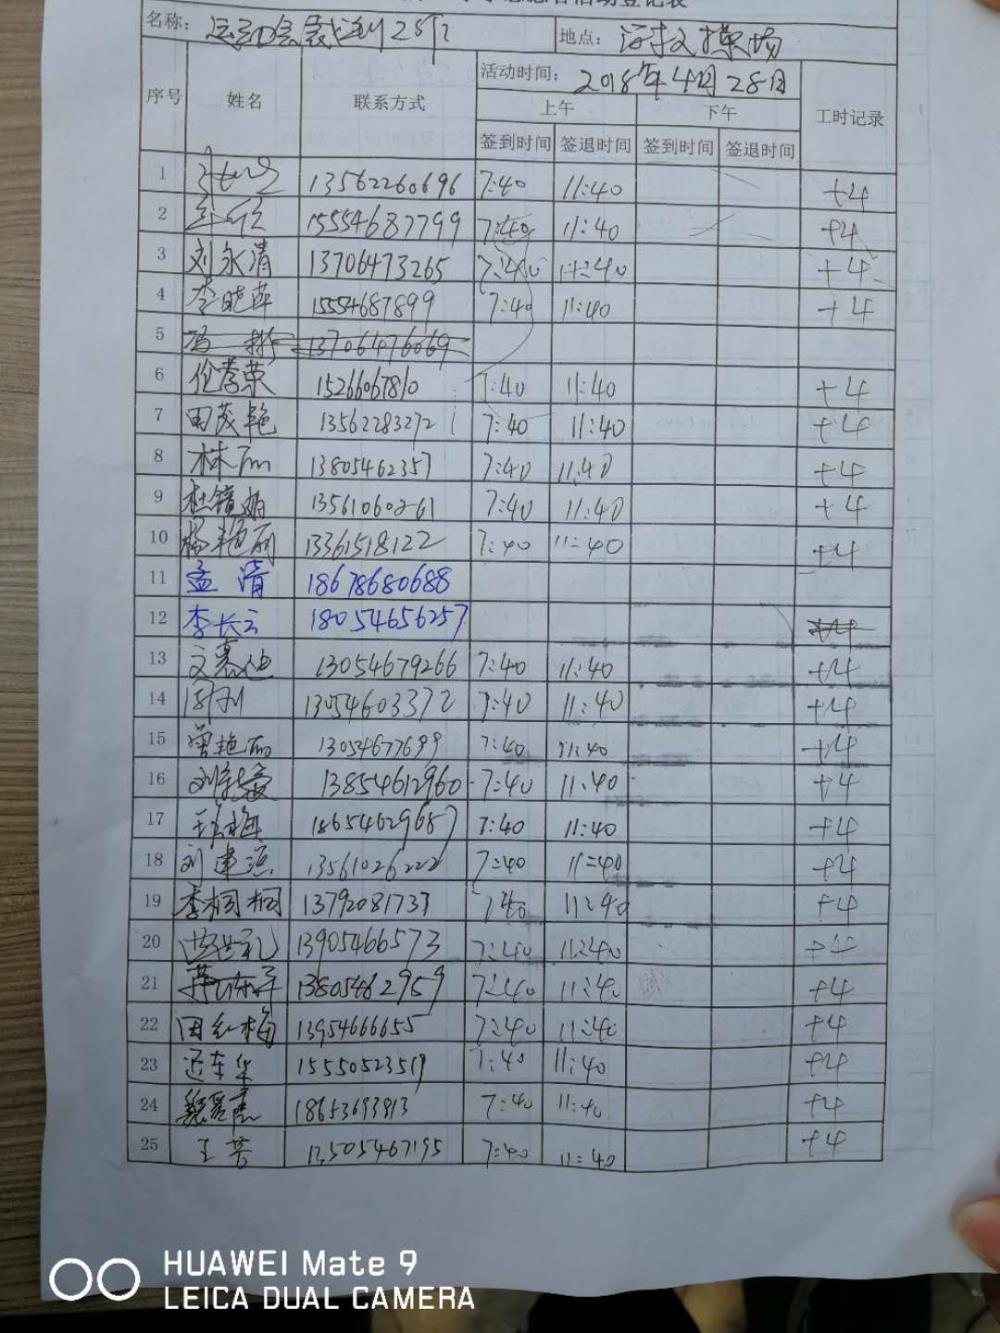 活动登记表
名称: 运动会裁判 地点:
活动时间: 2018年4月28日
序号 姓名 联系方式 上午 下午 工时记录
签到时间 签退时间 签到时间 签退时间
1 13562260696 7:40 11:40 +4
2 15554687799 7:40 11:40 +4
3 刘永清 13706473265 7:40 11:40 +4
4 李晓萍 15554687899 7:40 11:40 +4
5 13706476069
6 15266067810 7:40 11:40 +4
7 田茂艳 13562283272 7:40 11:40 +4
8 林丽 13805462357 7:40 11:40 +4
9 杜镜娟 13561060261 7:40 11:40 +4
10 杨艳丽 13361518122 7:40 11:40 +4
11 孟清 18678680688
12 李长云 18054656257 +4
13 13054679266 7:40 11:40 +4
14 13054603372 7:40 11:40 +4
15 曾艳丽 13054677699 7:40 11:40 +4
16 13854612960 7:40 11:40 +4
17 18654629687 7:40 11:40 +4
18 刘建 13561026222 7:40 11:40 +4
19 李桐桐 13792081733 7:40 11:40 +4
20 13905466573 7:40 11:40 +4
21 13805462959 7:40 11:40 +4
22 田红梅 13954666655 7:40 11:40 +4
23 15550523519 7:40 11:40 +4
24 18653693813 7:40 11:40 +4
25 王芳 13505467195 7:40 11:40 +4
HUAWEI Mate 9
LEICA DUAL CAMERA